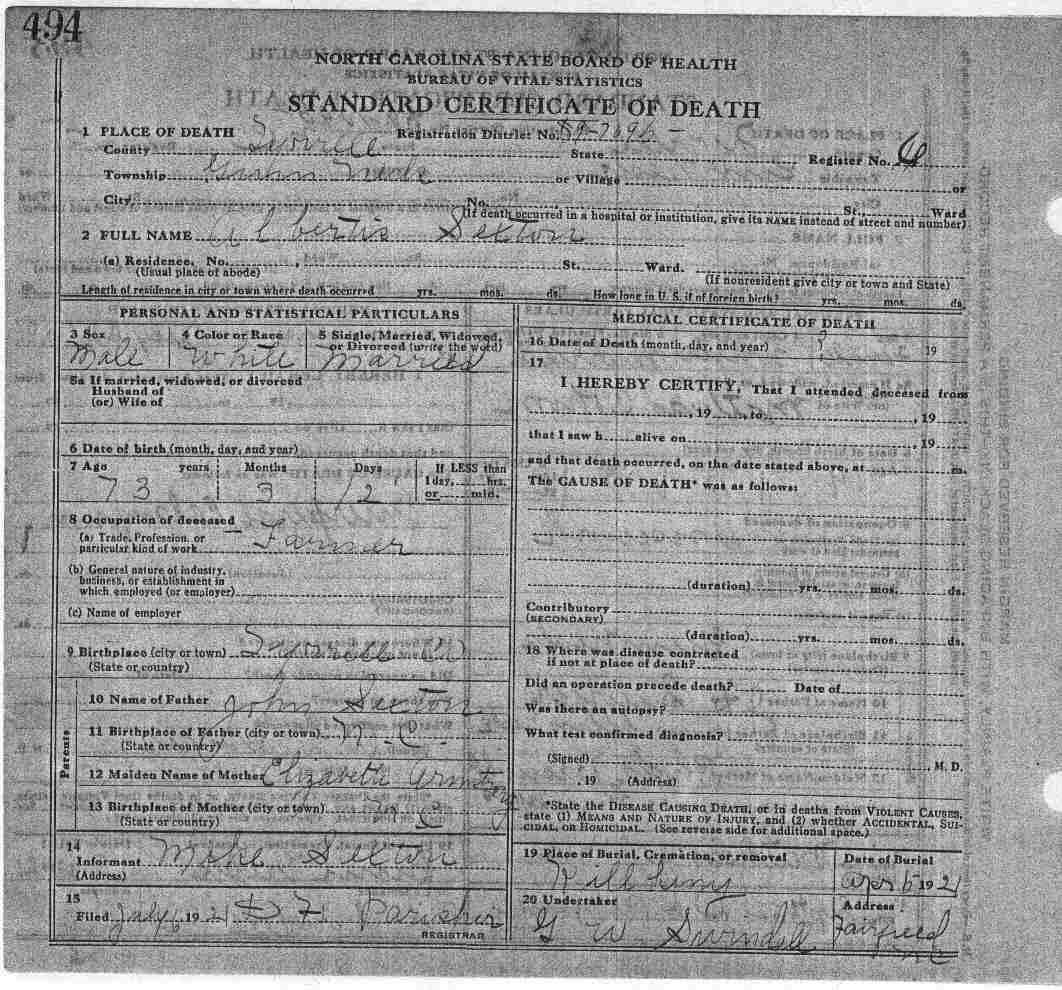 494
NORTH CAROLINA STATE BOARD OF HEALTH
BUREAU OF VITAL STATISTICS
STANDARD CERTIFICATE OF DEATH
1 PLACE OF DEATH Registration District No. 89-7696-
County Tyrrell State Register No. 6
Township or Village or
City No. St., Ward
(If death occurred in a hospital or institution, give its NAME instead of street and number)
2 FULL NAME Albertis Sexton
(a) Residence. No. , St. Ward.
(Usual place of abode) (If nonresident give city or town and State)
Length of residence in city or town where death occurred yrs. mos. ds. How long in U. S. if of foreign birth? yrs. mos. ds.
PERSONAL AND STATISTICAL PARTICULARS
3 Sex 4 Color or Race 5 Single, Married, Widowed, or Divorced (write the word)
Male White Married
5a If married, widowed, or divorced
Husband of
(or) Wife of
6 Date of birth (month, day, and year)
7 Age years Months Days If LESS than
1 day, hrs.
or min.
73 3 12
8 Occupation of deceased
(a) Trade, Profession, or
particular kind of work Farmer
(b) General nature of industry,
business, or establishment in
which employed (or employer)
(c) Name of employer
9 Birthplace (city or town)
(State or country)
Parents
10 Name of Father John Sexton
11 Birthplace of Father (city or town) N. C.
(State or country)
12 Maiden Name of Mother Elizabeth
13 Birthplace of Mother (city or town) C
(State or country)
14
Informant Sexton
(Address)
15
Filed July 192
REGISTRAR
MEDICAL CERTIFICATE OF DEATH
16 Date of Death (month, day, and year) 19
17
I HEREBY CERTIFY, That I attended deceased from
, 19 , to , 19
that I saw h alive on , 19
and that death occurred, on the date stated above, at m.
The CAUSE OF DEATH* was as follows:
(duration) yrs. mos. ds.
Contributory
(SECONDARY)
(duration) yrs. mos. ds.
18 Where was disease contracted
if not at place of death?
Did an operation precede death? Date of
Was there an autopsy?
What test confirmed diagnosis?
(Signed) , M. D.
, 19 (Address)
*State the DISEASE CAUSING DEATH, or in deaths from VIOLENT CAUSES,
state (1) MEANS AND NATURE OF INJURY, and (2) whether ACCIDENTAL, SUI-
CIDAL, OR HOMICIDAL. (See reverse side for additional space.)
19 Place of Burial, Cremation, or removal Date of Burial
Apr 5 1921
20 Undertaker Address
G W Swindell Fairfield
NC